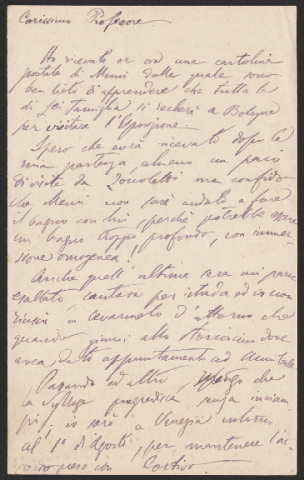 Carissimo Professore
Ho ricevuto or ora una cartolina
postale di Memi dalla quale sono
ben lieto di apprendere che tutta la
di Lei famiglia si recherà a Bologna
per visitare l'Esposizione.
Spero che avrà ricevuto dopo la
mia partenza, almeno un paio
di visite da ma confido
che Memi non sarà andato a fare
il bagno con lui, perchè potrebbe essere
un bagno troppo profondo, con immer-
sione omogenea!
Anche quell' ultima sera mi parve
cantava per istrada ed io non
riuscii a levarmelo d'attorno che
quando giunsi allo dove
aveva dato appuntamento ad
Passando ad altro, spero che
la Sylloge progredisca senza inciam-
pi; io sarò a Venezia intorno
al 1º di Agosto, per mantenere l'ac-
cordo preso con